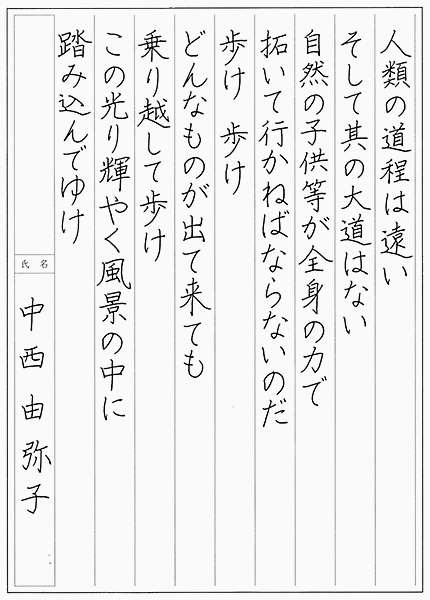 人類の道程は遠い
そして其の大道はない
自然の子供等が全身の力で
拓いて行かねばならないのだ
歩け 歩け
どんなものが出て来ても
乗り越して歩け
この光り輝やく風景の中に
踏み込んでゆけ
氏名
中西由弥子